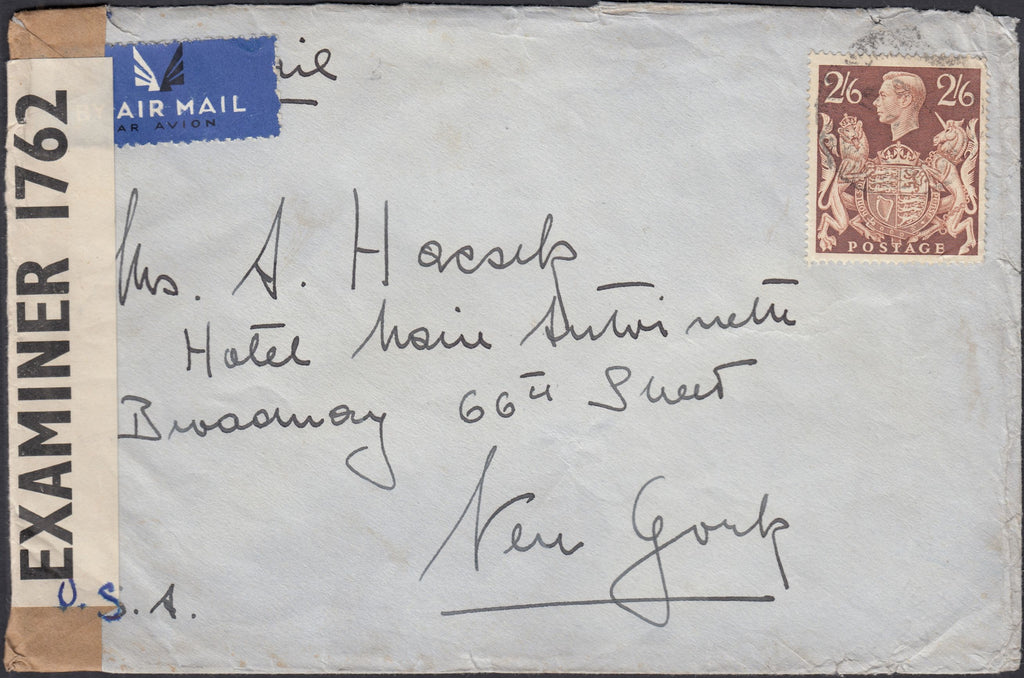 EXAMINER 1762
BY AIR MAIL
PAR AVION
2/6 2/6
POSTAGE
Mrs. A. Hacsek
Hotel Marie Antoinette
Broadway 66th Street
New York
U.S.A.